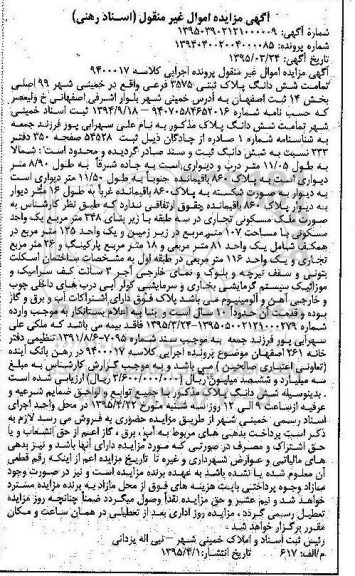 آگهی مزایده اموال غیر منقول (اسناد رهنی)
شماره آگهی: ۱۳۹۵۰۳۹۰۲۱۲۱۰۰۰۰۰۹
شماره پرونده: ۱۳۹۴۰۴۰۰۲۰۰۴۰۰۰۰۸۵
تاریخ آگهی: ۱۳۹۵/۰۳/۲۴
آگهی مزایده اموال غیر منقول پرونده اجرایی کلاسه ۹۴۰۰۰۱۷
تمامت شش دانگ پلاک ثبتی ۳۵۷۵ فرعی واقع در خمینی شهر ۹۹ اصلی
بخش ۱۴ ثبت اصفهان به آدرس خمینی شهر بلوار اشرفی اصفهانی خ ولیعصر
که حسب نامه شماره ۹۴۰۷۰۵۸۴۶۵۴۰۱۶-۱۳۹۴/۹/۱۸ ثبت اسناد خمینی
شهر تمامت شش دانگ پلاک مذکور به نام علی سهرابی پور فرزند جمعه
به شناسنامه شماره ۱ صادره از چادگان ذیل ثبت ۵۳۵۲۸ صفحه ۳۵۰ دفتر
۲۳۳ نسبت به شش دانگ ثبت و سند صادر گردیده و محدود است: شمالا
به طول ۱۱/۰۵ متر درب و دیواری است به جاده شرقاً به طول ۸/۹۰ متر
دیواری است به پلاک ۸۶۰ باقیمانده جنوباً به طول ۱۱/۵۰ متر دیواری است
به دیوار به صورت شکسته به پلاک ۸۶۰ باقیمانده غرباً به طول ۱۶ متر دیوار
به دیوار پلاک ۸۶۰ باقیمانده حقوق ارتفاقی ندارد که طبق نظر کارشناس به
صورت ملک مسکونی تجاری در سه طبقه با زیر بنای ۳۴۸ متر مربع یک واحد
مسکونی با مساحت ۱۰۷ متر مربع در زیر زمین و یک واحد ۱۲۵ متر مربع در
همکف شامل یک واحد ۸۱ متر مربعی و ۱۸ متر مربع پارکینگ و ۲۶ متر مربع
تجاری و یک واحد ۱۱۶ متر مربعی در طبقه اول به مشخصات ساختمان اسکلت
بتونی و سقف تیرچه و بلوک و نمای خارجی آجر ۳ سانت کف سرامیک و
موزائیک سیستم گرمایشی بخاری و سرمایشی کولر آبی درب های داخلی چوب
و خارجی آهن و آلومینیوم می باشد پلاک فوق دارای اشتراکات آب و برق و گاز
بوده و قدمت آن حدوداً ۱۰ سال است و بنا به اعلام بستانکار به موجب وارده
شماره ۱۳۹۵۰۵۰۰۲۱۲۱۰۰۰۲۷۹-۱۳۹۵/۳/۲۴ فاقد بیمه می باشد که ملکی علی
سهرابی پور فرزند جمعه به موجب سند شماره ۷۰۹۵-۱۳۹۱/۸/۶ تنظیمی دفتر
خانه ۲۶۱ اصفهان موضوع پرونده اجرایی کلاسه ۹۴۰۰۰۱۷ در رهن بانک آینده
(تعاونی اعتباری صالحین) می باشد و به موجب گزارش کارشناس به مبلغ
سه میلیارد و ششصد میلیون ریال (۳/۶۰۰/۰۰۰/۰۰۰ ریال) ارزیابی شده است
. بدینوسیله شش دانگ پلاک مذکور با جمیع توابع و لواحق ضمایم شرعیه و
عرفیه از ساعت ۹ الی ۱۲ روز سه شنبه مورخ ۱۳۹۵/۴/۲۲ در محل واحد اجرای
اسناد رسمی خمینی شهر از طریق مزایده حضوری به فروش می رسد لازم به
ذکر است پرداخت بدهی های مربوط به آب، برق، گاز اعم از حق انشعاب و یا
حق اشتراک و مصرف در صورتی که مورد مزایده دارای آنها باشد و نیز بدهی
های مالیاتی و عوارض شهرداری و غیره تا تاریخ مزایده اعم از اینکه رقم قطعی
آن معلوم شده یا نشده باشد به عهده برنده مزایده است و نیز در صورت وجود
مازاد وجوه پرداختی بابت هزینه های فوق از محل مازاد به برنده مزایده مسترد
خواهد شد و نیم عشر و حق مزایده نقداً وصول میگردد ضمناً چنانچه روز مزایده
تعطیل رسمی گردد ، مزایده روز اداری بعد از تعطیلی در همان ساعت و مکان
مقرر برگزار خواهد شد .
رئیس ثبت اسناد و املاک خمینی شهر - نبی اله یزدانی
م/الف: ۶۱۷ تاریخ انتشار: ۱۳۹۵/۴/۱